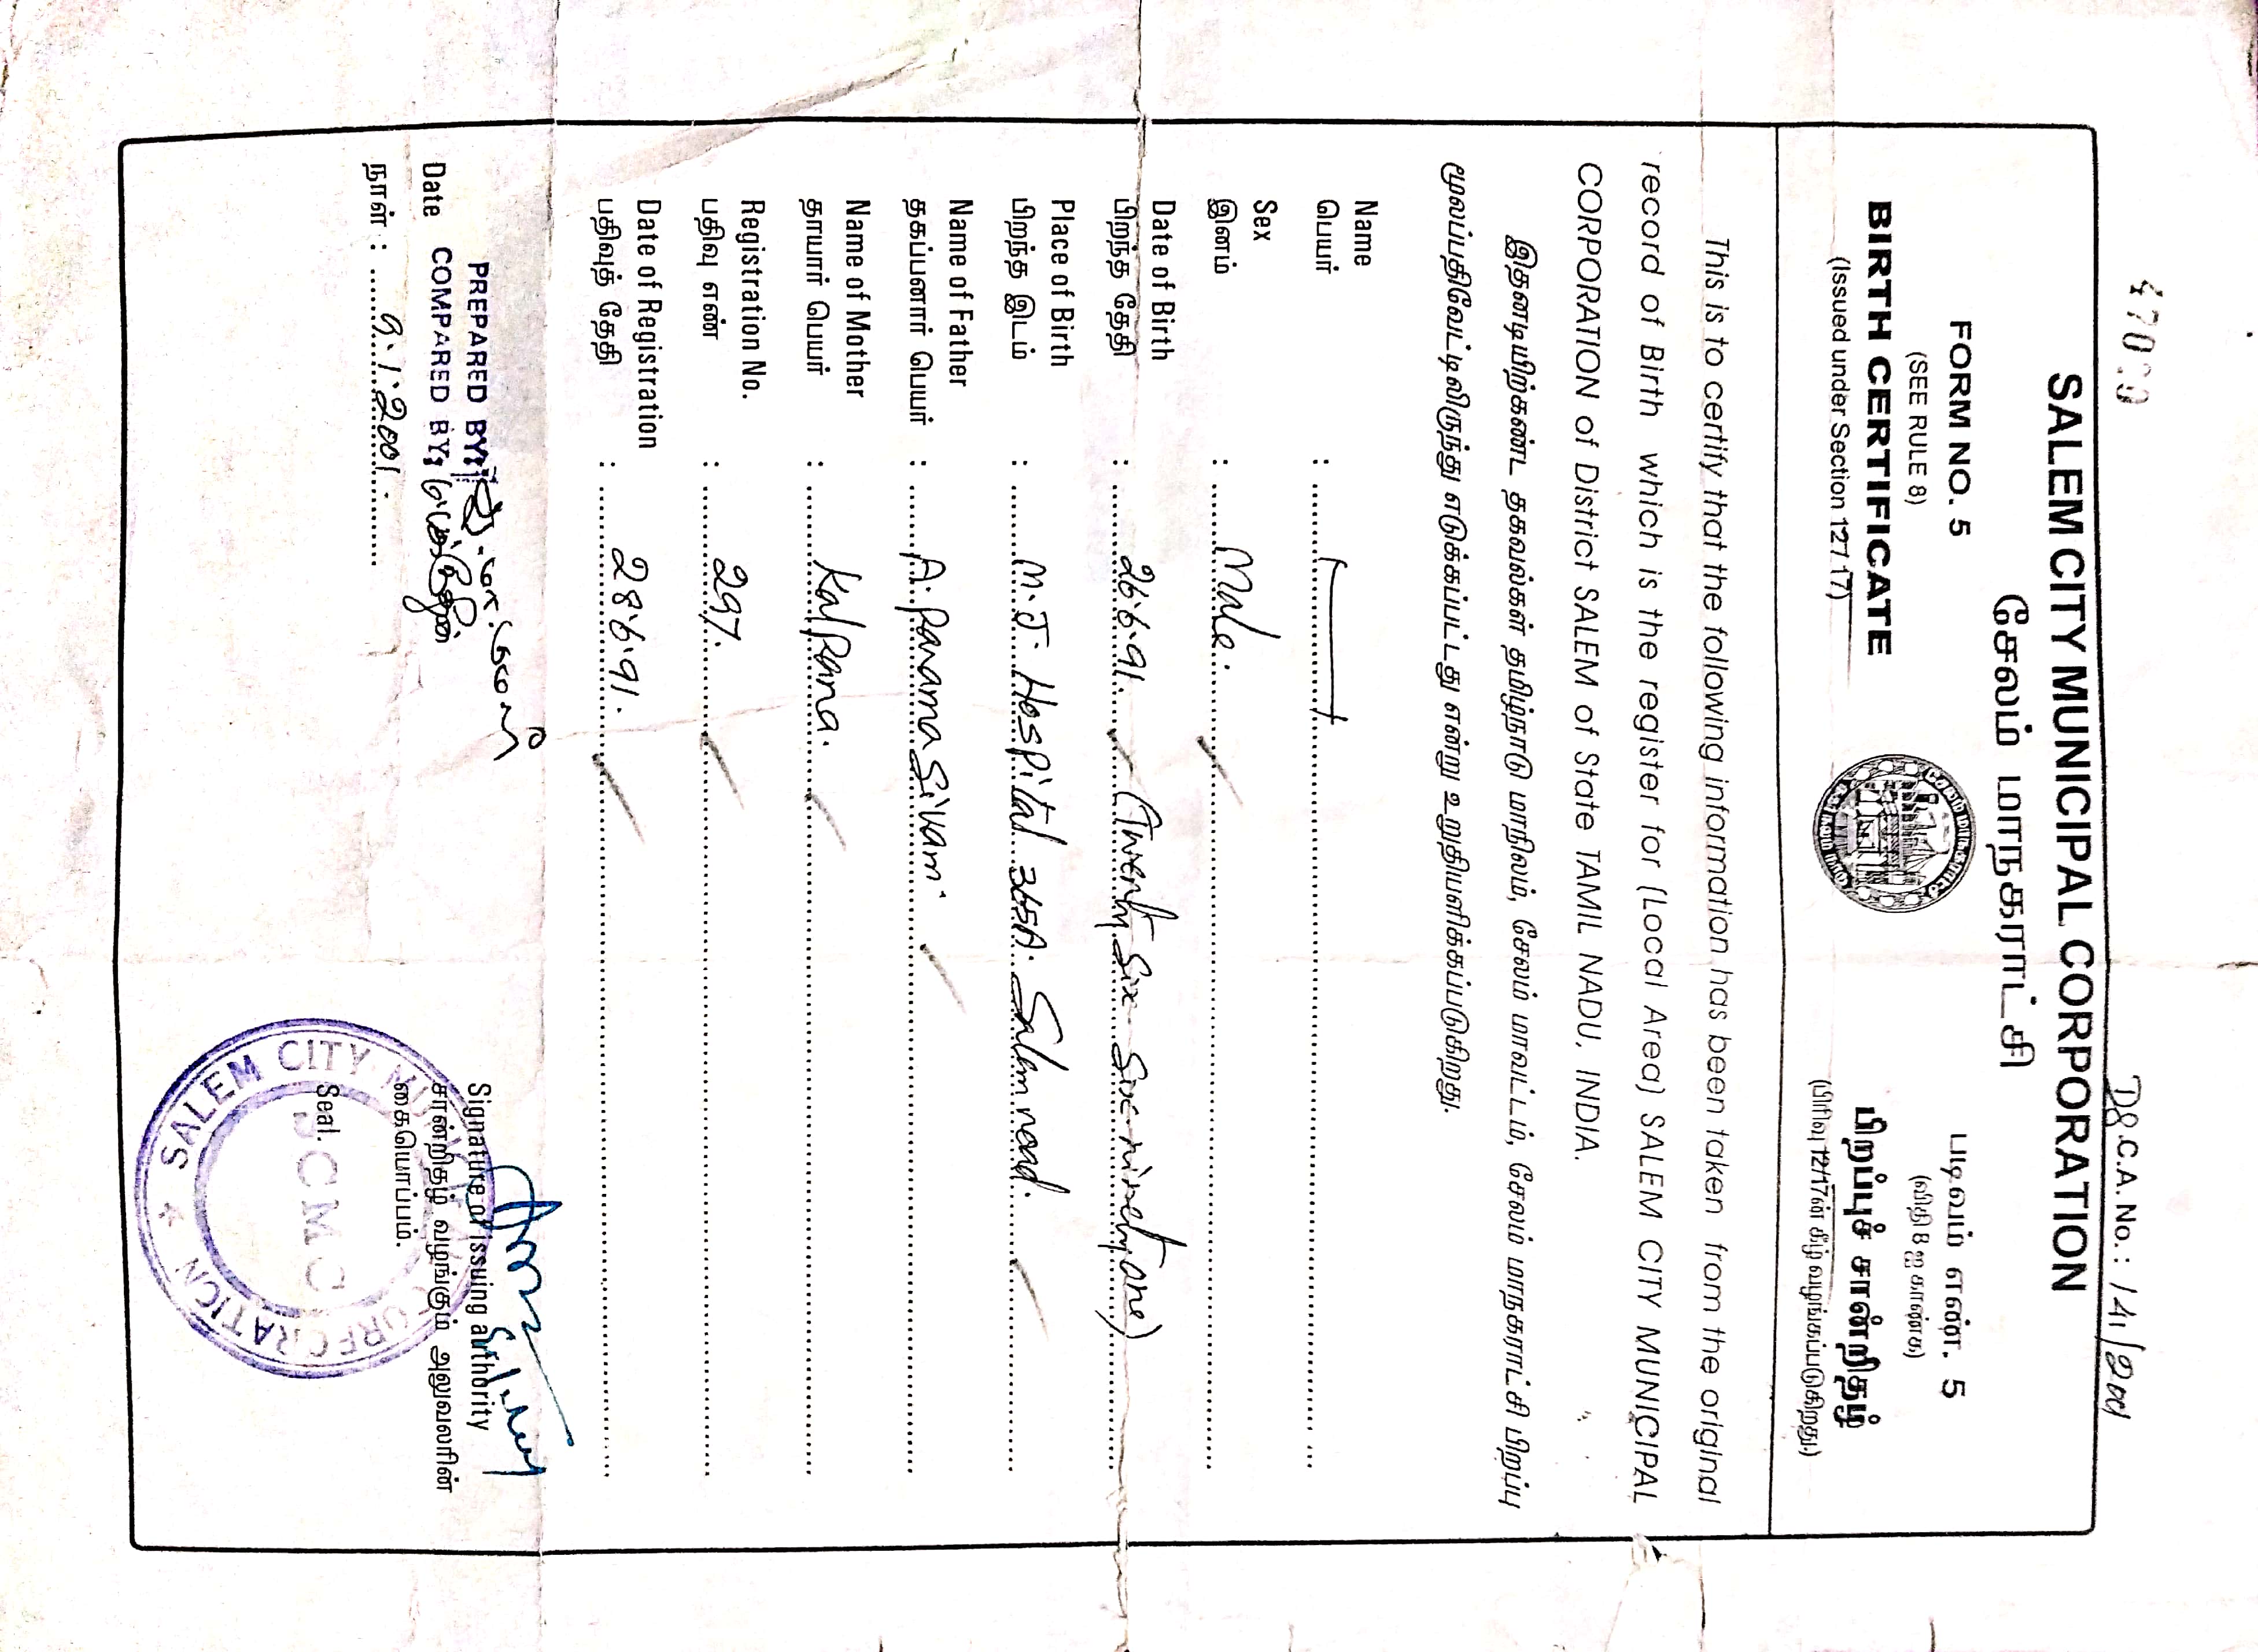 47000
D8.C.A. No. : 141/2001
SALEM CITY MUNICIPAL CORPORATION
சேலம் மாநகராட்சி
FORM NO. 5
(SEE RULE 8)
BIRTH CERTIFICATE
(Issued under Section 12/17)
படிவம் எண். 5
(விதி 8 ஐ காண்க)
பிறப்புச் சான்றிதழ்
(பிரிவு 12/17ன் கீழ் வழங்கப்படுகிறது)
This is to certify that the following information has been taken from the original
record of Birth which is the register for (Local Area) SALEM CITY MUNICIPAL
CORPORATION of District SALEM of State TAMIL NADU, INDIA.
இதனடியிற்கண்ட தகவல்கள் தமிழ்நாடு மாநிலம், சேலம் மாவட்டம், சேலம் மாநகராட்சி பிறப்பு
மூலப்பதிவேட்டிலிருந்து எடுக்கப்பட்டது என்று உறுதியளிக்கப்படுகிறது.
Name
பெயர் :
Sex
இனம் : Male.
Date of Birth
பிறந்த தேதி : 26.6.91. (Twenty Six - Six - ninety one)
Place of Birth
பிறந்த இடம் : M.J. Hospital 365A. Salem road.
Name of Father
தகப்பனார் பெயர் : A. Paramasivam.
Name of Mother
தாயார் பெயர் : Kalpana.
Registration No.
பதிவு எண் : 297.
Date of Registration
பதிவுத் தேதி : 28.6.91.
PREPARED BY:
COMPARED BY:
Date
நாள் : 9.1.2001.
Signature of issuing authority
சான்றிதழ் வழங்கும் அலுவலரின்
கையொப்பம்.
Seal.
SALEM CITY MUNICIPAL CORPORATION
SCMC